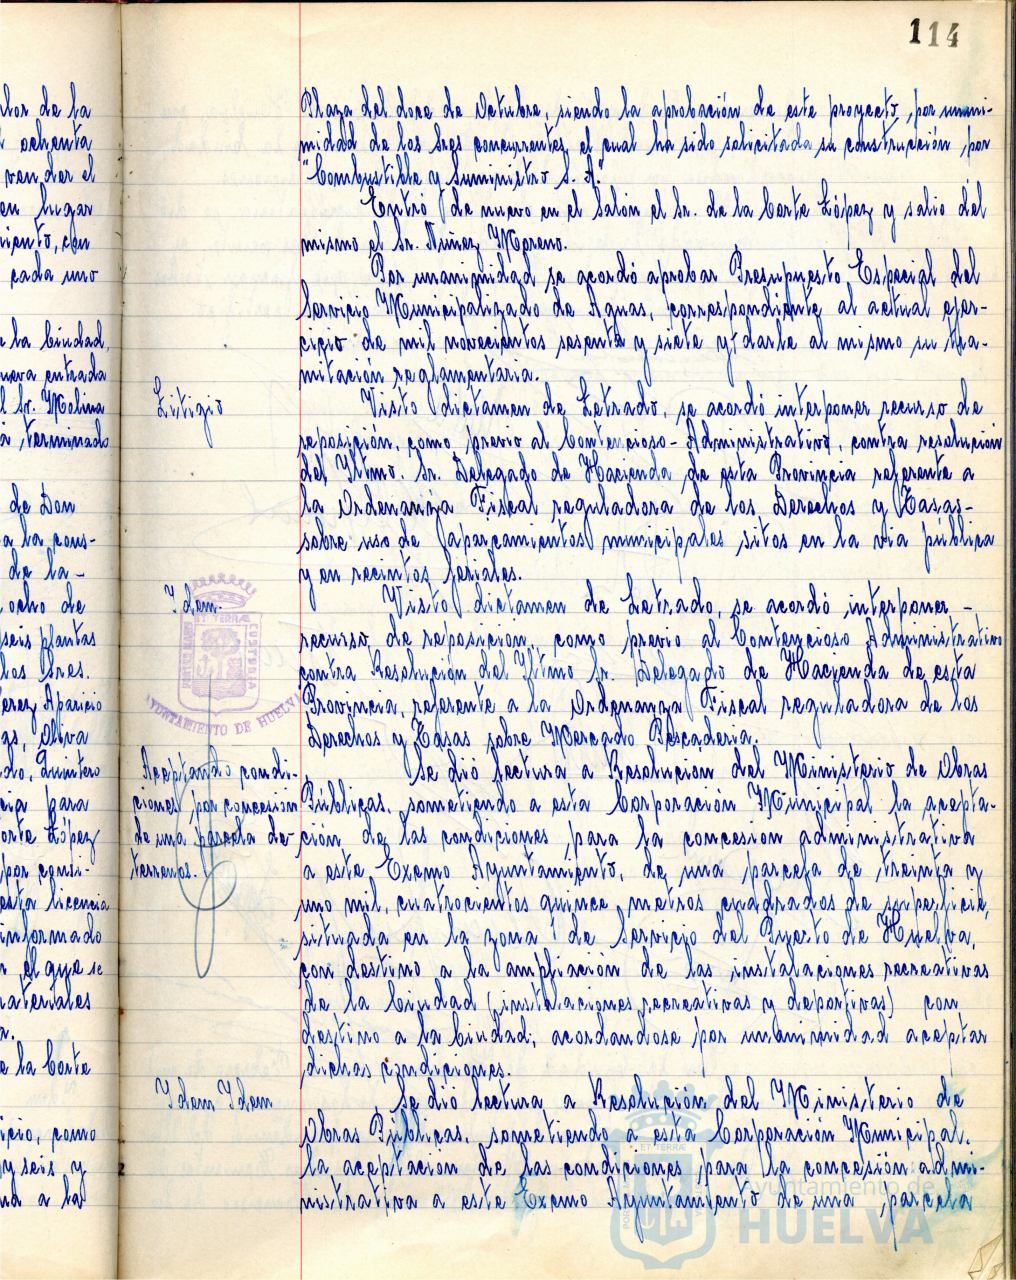 114
Plaza del doce de Octubre, siendo la aprobación de este proyecto, por unani-
midad de los Sres concurrentes, el cual ha sido solicitada su construcción, por
"Combustible y Suministro S. A."
Entró de nuevo en el Salón el Sr. de la Corte López y salió del
mismo el Sr. Núñez Moreno.
Por unanimidad se acordó aprobar Presupuesto Especial del
Servicio Municipalizado de Aguas, correspondiente al actual ejer-
cicio de mil novecientos sesenta y siete y darle al mismo su tra-
mitación reglamentaria.
Litigio
Visto dictamen de Letrado, se acordó interponer recurso de
reposición, como previo al Contencioso-Administrativo, contra resolución
del Iltmo. Sr. Delegado de Hacienda de esta Provincia referente a
la Ordenanza Fiscal reguladora de los Derechos y Tasas-
sobre uso de aparcamientos municipales sitos en la via pública
y en recintos feriales.
Idem.
Visto dictamen de Letrado, se acordó interponer -
recurso de reposición, como previo al Contencioso Administrativo
contra Resolución del Iltmo Sr. Delegado de Hacienda de esta
Provincia, referente a la Ordenanza Fiscal reguladora de los
Derechos y Tasas sobre Mercado Pescaderia.
Aceptando condi-
ciones por concesión
de una parcela de
terrenos.
Se dió lectura a Resolucion del Ministerio de Obras
Públicas, sometiendo a esta Corporación Municipal la acepta-
ción de las condiciones, para la concesion administrativa
a este Excmo Ayuntamiento, de una parcela de treinta y
uno mil, cuatrocientos quince metros cuadrados de superficie,
situada en la zona de Servicio del Puerto de Huelva,
con destino a la ampliación de las instalaciones recreativas
de la Ciudad (instalaciones recreativas y deportivas) con
destino a la Ciudad, acordandose por unanimidad aceptar
dichas condiciones.
Idem Idem
Se dió lectura a Resolución del Ministerio de
Obras Públicas, sometiendo a esta Corporación Municipal.
la aceptación de las condiciones para la concesión admi-
nistrativa a este Excmo Ayuntamiento de una parcela
AYUNTAMIENTO DE HUELVA
Ayuntamiento de
HUELVA
lor de la
ochenta
vender el
en lugar
miento, con
cada uno
la Ciudad,
nueva entrada
l Sr. Molina
a terminado
de Don
a la cons-
de la-
ocho de
seis plantas
los Sres.
Perez Aparicio
Oliva
do, Quintero
para
Corte López
por consi-
esta licencia
informado
el que se
materiales
a.
e la Corte
icio, como
y seis y
a la